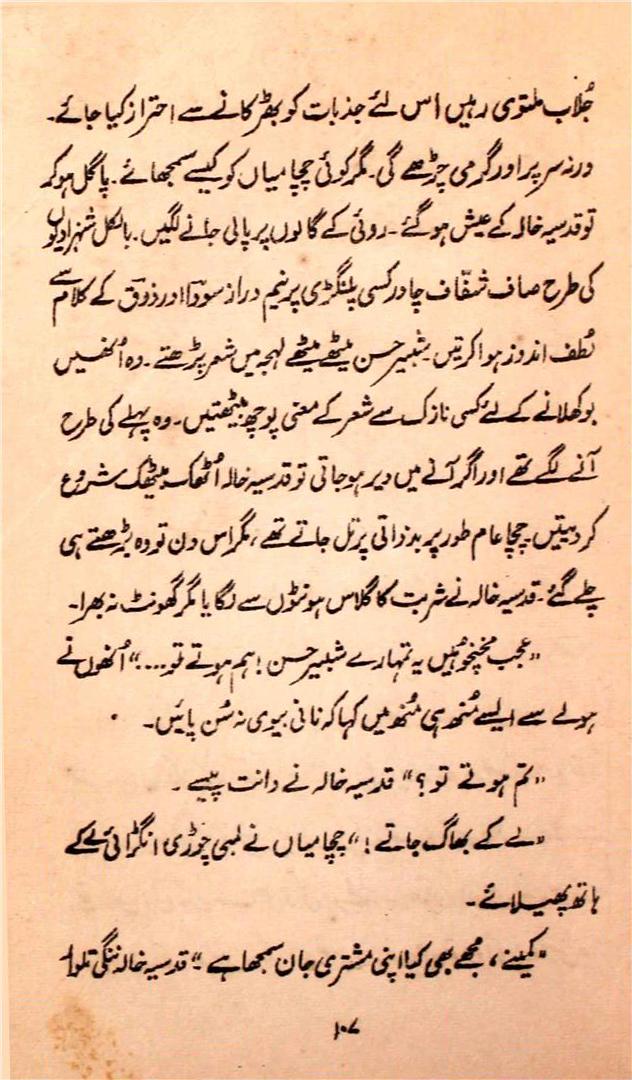 جُلاب ملتوی رہیں اس لئے جذبات کو بھڑکانے سے احتراز کیا جائے۔
ورنہ سر پر اور گرمی چڑھے گی۔ مگر کوئی چچا میاں کو کیسے سمجھائے۔ پاگل ہو کر
تو قدسیہ خالہ کے عیش ہو گئے۔ روئی کے گالوں پر پالی جانے لگیں۔ بالکل شہزادیوں
کی طرح صاف شفّاف چادر کسی پلنگڑی پر نیم دراز سوداؔ اور ذوقؔ کے کلام سے
لُطف اندوز ہوا کرتیں۔ شبیر حسن میٹھے میٹھے لہجہ میں شعر پڑھتے۔ وہ اُنھیں
بوکھلانے کے لئے کسی نازک سے شعر کے معنی پوچھ بیٹھتیں۔ وہ پہلے کی طرح
آنے لگے تھے اور اگر آنے میں دیر ہو جاتی تو قدسیہ خالہ اُٹھک بیٹھک شروع
کر دیتیں۔ چچا عام طور پر بدذاتی پر تل جاتے تھے، مگر اس دن تو وہ بڑھتے ہی
چلے گئے۔ قدسیہ خالہ نے شربت کا گلاس ہونٹوں سے لگایا مگر گھونٹ نہ بھرا۔
”عجب ہیں یہ تمہارے شبیر حسن! ہم ہوتے تو....“ اُنھوں نے
ہولے سے ایسے مُنھ ہی مُنھ میں کہا کہ نانی بیوی نہ سُن پائیں۔
”تم ہوتے تو؟“ قدسیہ خالہ نے دانت پیسے۔
”لے کے بھاگ جاتے!“ چچا میاں نے لمبی چوڑی انگڑائی لے کے
ہاتھ پھیلائے۔
”کمینے، مجھے بھی کیا اپنی مشتری جان سمجھا ہے۔“ قدسیہ خالہ ننگی تلوار
۱۰۷